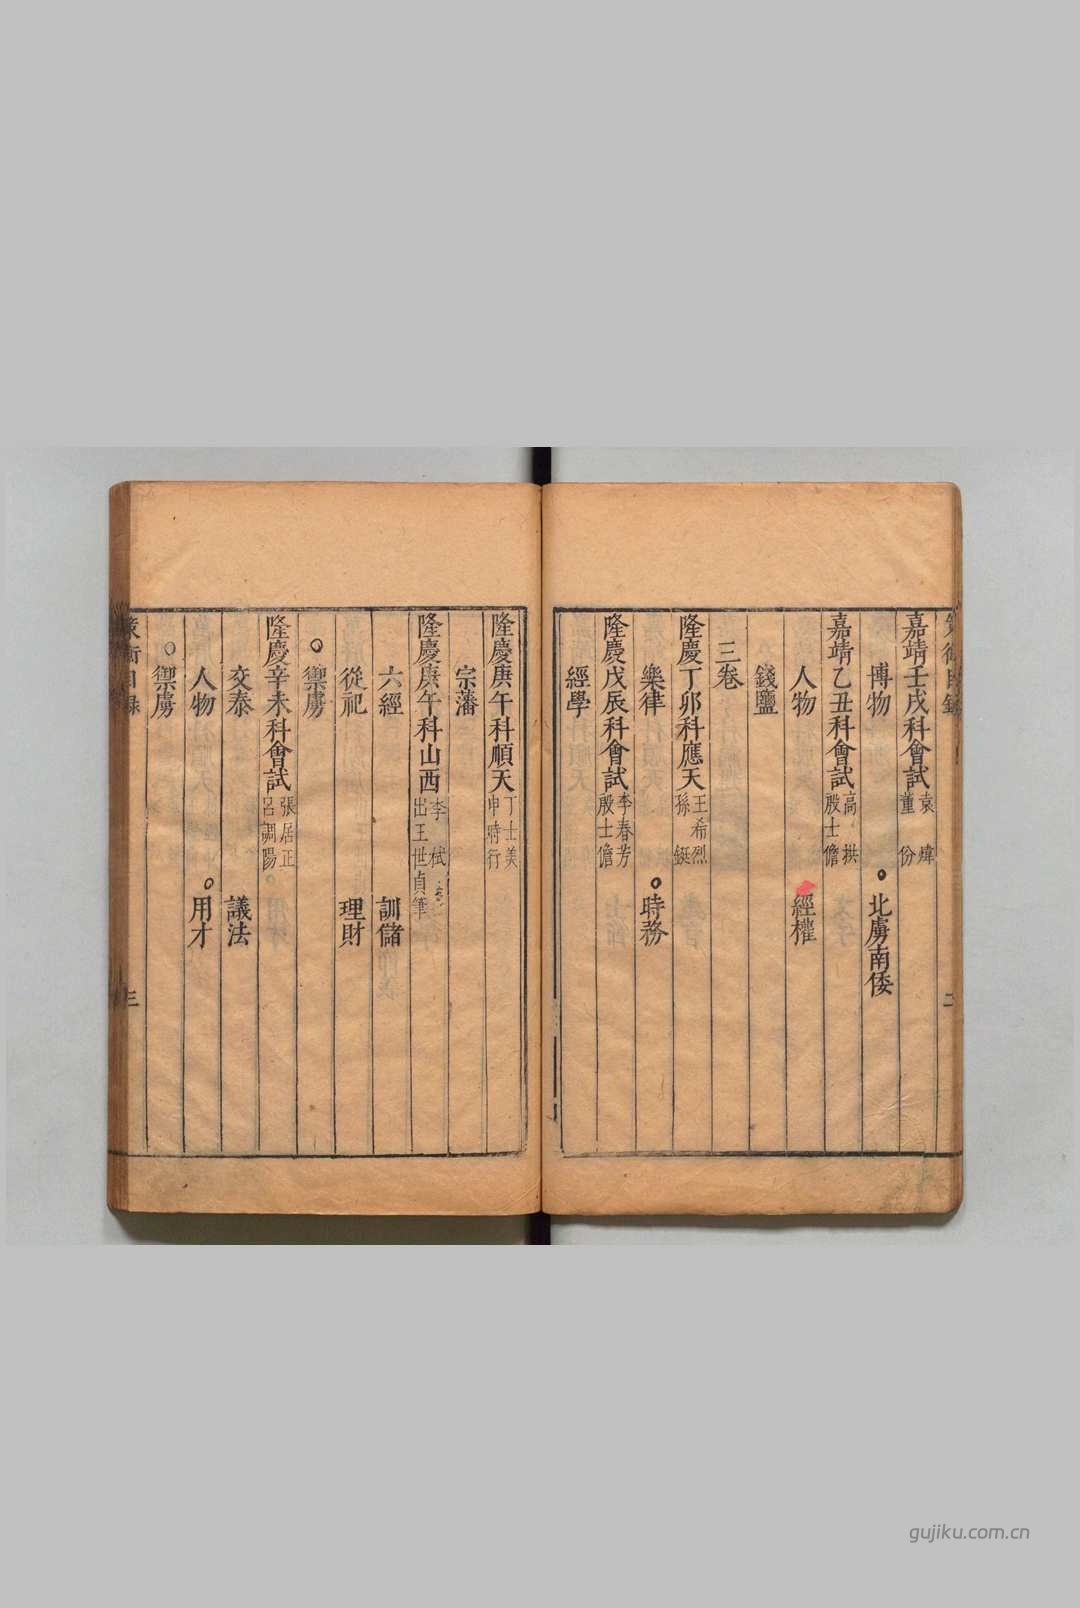 嘉靖壬戌科會試 袁煒 董份
博物 北虜南倭
嘉靖乙丑科會試 高拱 殷士儋
人物 經權
錢鹽
三卷
隆慶丁卯科應天 王希烈 孫鋌
樂律 時務
隆慶戊辰科會試 李春芳 殷士儋
經學
隆慶庚午科順天 丁士美 申時行
宗藩
隆慶庚午科山西 李栻 出王世貞筆
六經 訓儲
從祀 理財
禦虜
隆慶辛未科會試 張居正 呂調陽
交泰 議法
人物 用才
禦虜
策衡目錄 三
gujiku.com.cn